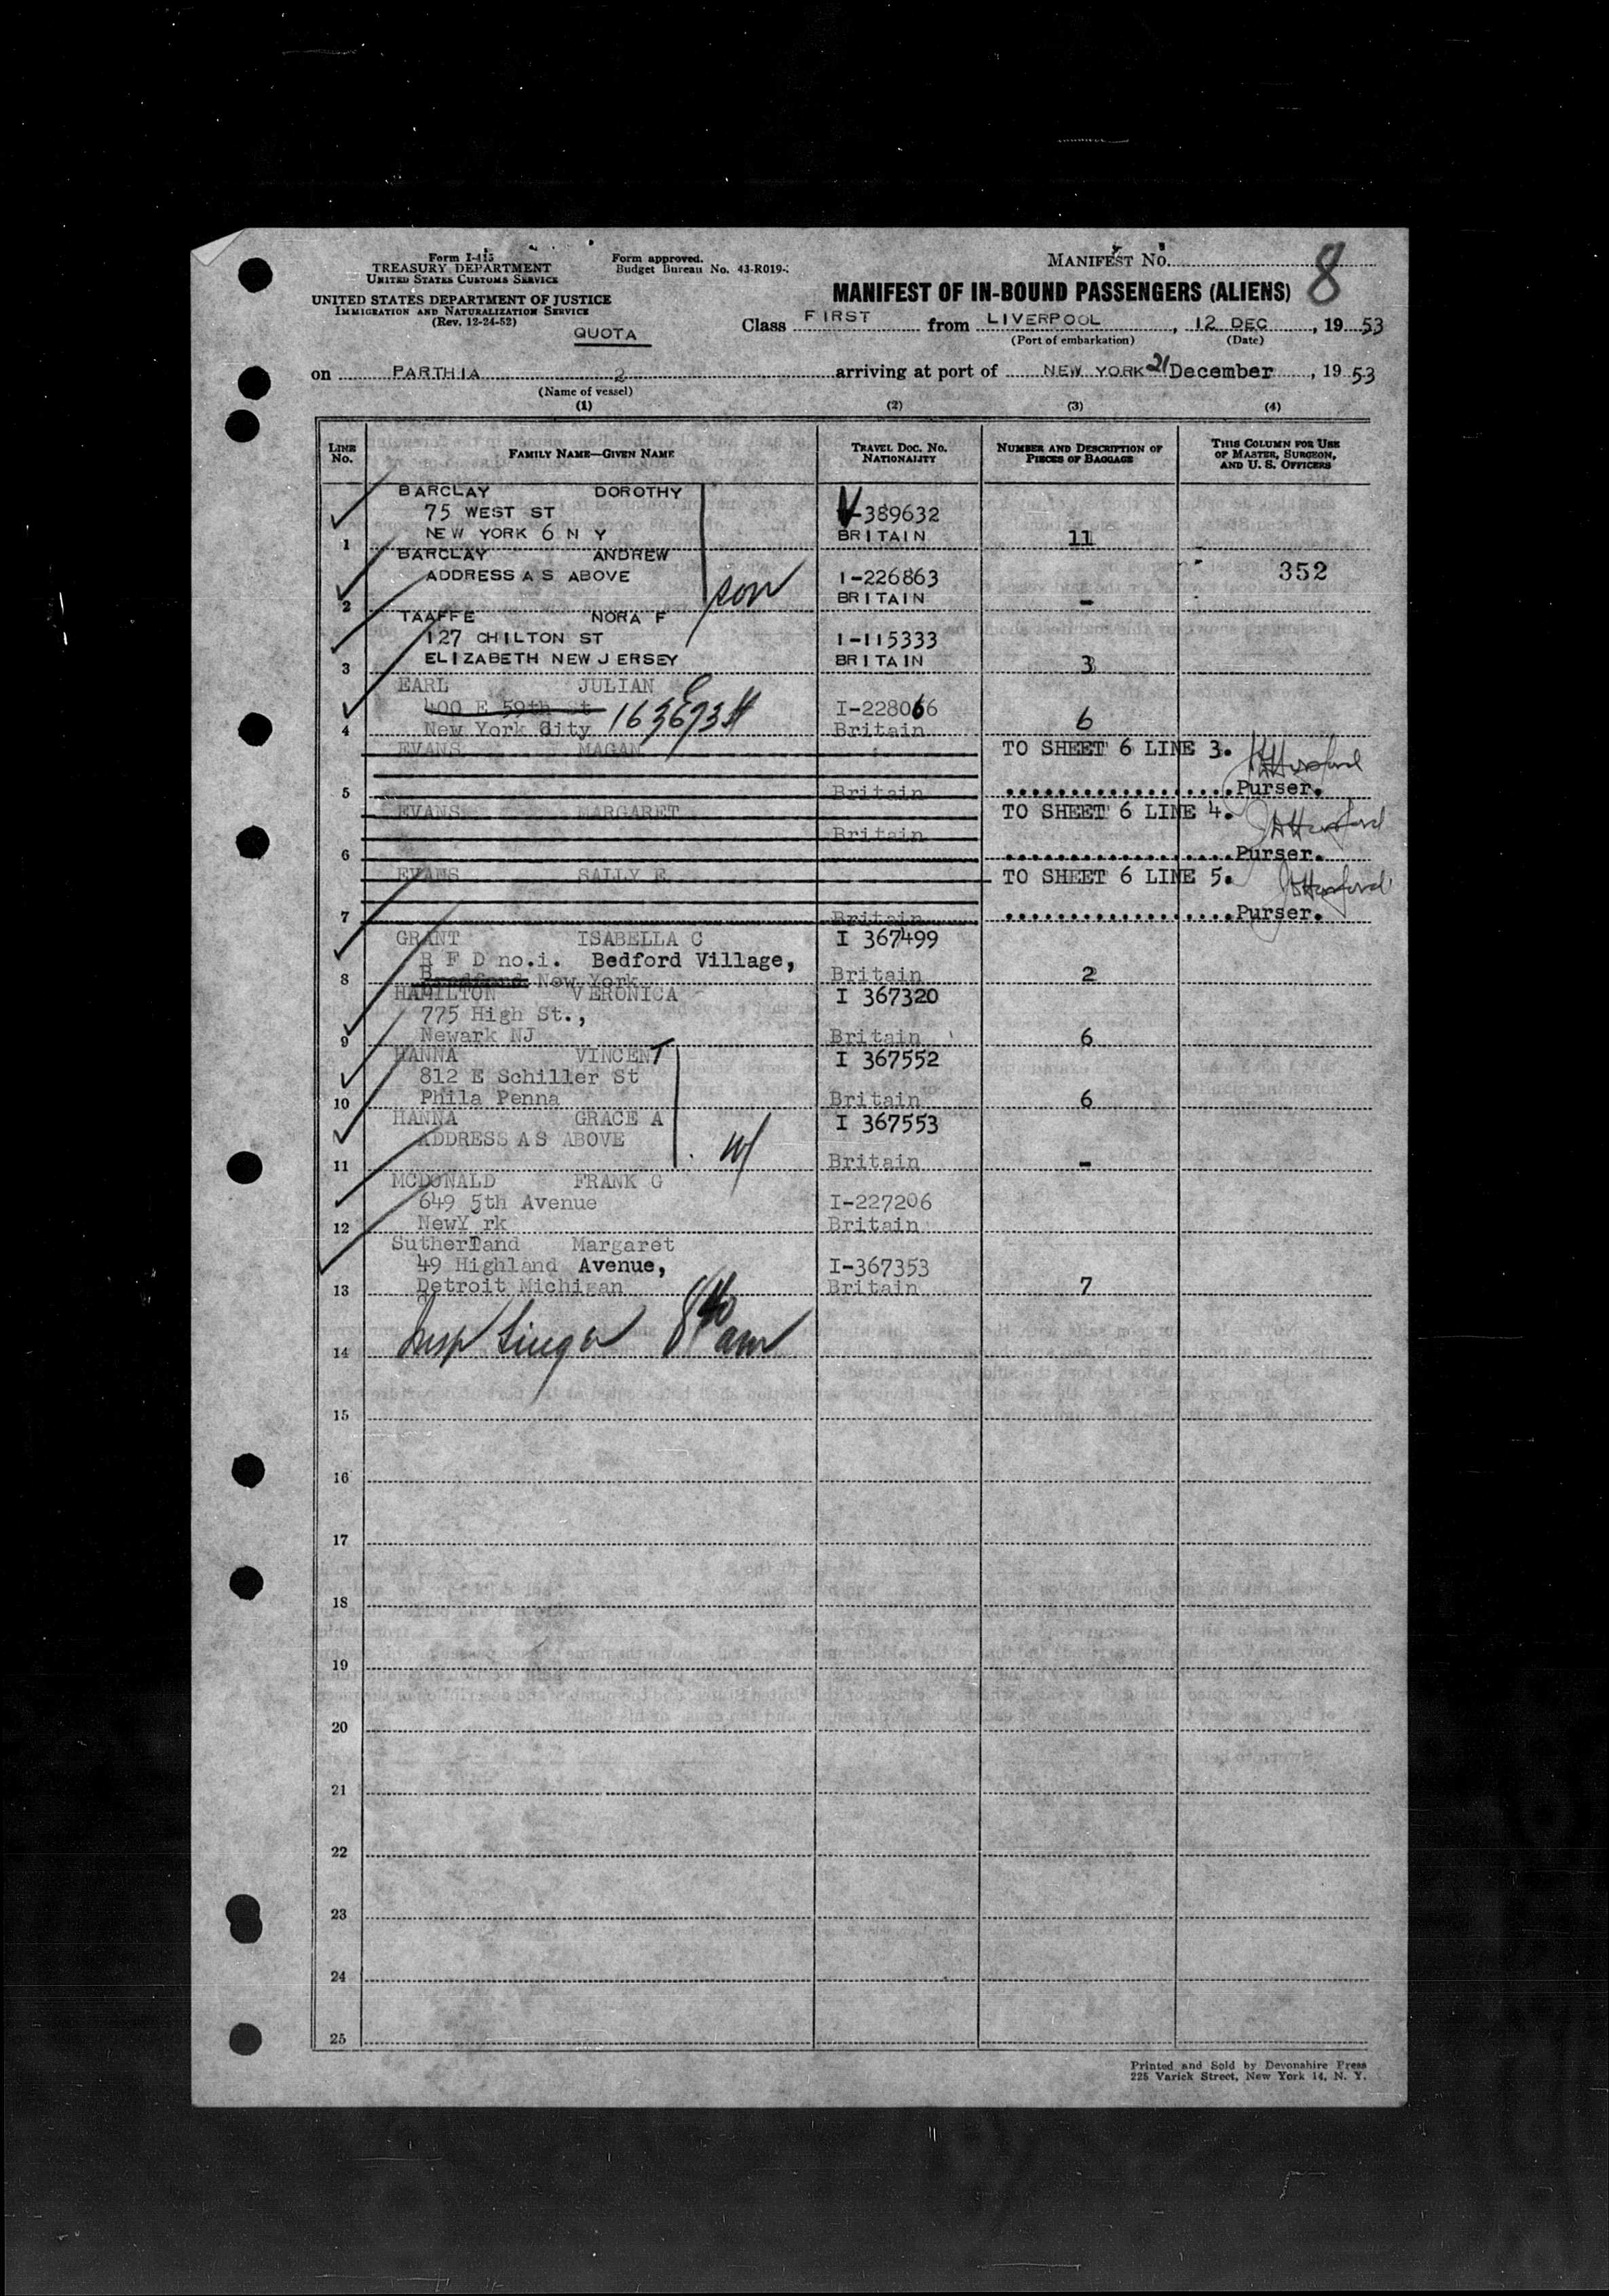 Form I-415
TREASURY DEPARTMENT
UNITED STATES CUSTOMS SERVICE
Form approved.
Budget Bureau No. 43-R019-
MANIFEST No.
8
UNITED STATES DEPARTMENT OF JUSTICE
IMMIGRATION AND NATURALIZATION SERVICE
(Rev. 12-24-52)
QUOTA
MANIFEST OF IN-BOUND PASSENGERS (ALIENS)
Class FIRST from LIVERPOOL, 12 DEC, 1953
(Port of embarkation) (Date)
on PARTHIA 2 arriving at port of NEW YORK 21 December, 1953
(Name of vessel)
(1) (2) (3) (4)
LINE No. FAMILY NAME—GIVEN NAME TRAVEL DOC. NO. NATIONALITY NUMBER AND DESCRIPTION OF PIECES OF BAGGAGE THIS COLUMN FOR USE OF MASTER, SURGEON, AND U. S. OFFICERS
BARCLAY DOROTHY
75 WEST ST V-389632
1 NEW YORK 6 N Y BRITAIN 11
BARCLAY ANDREW
ADDRESS AS ABOVE son I-226863 352
2 BRITAIN -
TAAFFE NORA F
127 CHILTON ST I-115333
3 ELIZABETH NEW JERSEY BRITAIN 3
EARL JULIAN
400 E 59th St 163 E 73 St I-228066
4 New York City Britain 6
EVANS MAGAN TO SHEET 6 LINE 3.
5 Britain Purser.
EVANS MARGARET TO SHEET 6 LINE 4.
Britain
6 Purser.
EVANS SALLY E TO SHEET 6 LINE 5.
7 Britain Purser.
GRANT ISABELLA C I 367499
R F D no.i. Bedford Village,
8 Bradford New York Britain 2
HAMILTON VERONICA I 367320
775 High St.,
9 Newark NJ Britain 6
HANNA VINCENT I 367552
812 E Schiller St
10 Phila Penna Britain 6
HANNA GRACE A I 367553
ADDRESS AS ABOVE W/
11 Britain -
MCDONALD FRANK G
649 5th Avenue I-227206
12 NewY rk Britain
Sutherland Margaret
49 Highland Avenue, I-367353
13 Detroit Michigan Britain 7
14 Insp Singer 8 40 am
15
16
17
18
19
20
21
22
23
24
25
Printed and Sold by Devonshire Press
225 Varick Street, New York 14, N. Y.